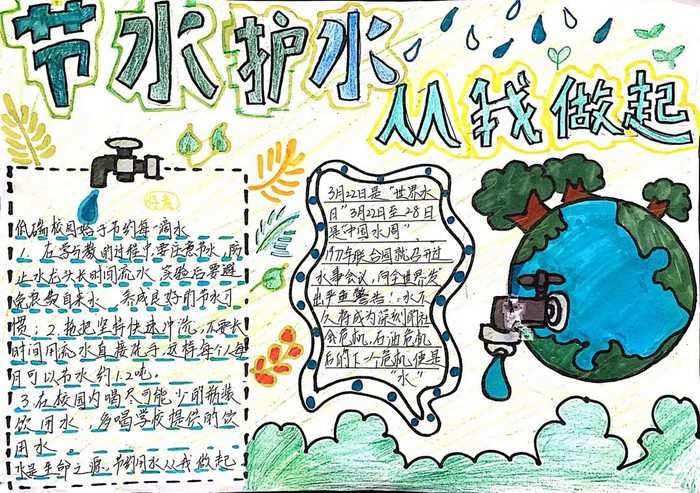 节水护水
从我做起
低碳校园始于节约每一滴水
1、在学与教的过程中,要注意节水,防
止水龙头长时间流水,实验后要避
免浪费自来水,养成良好的节水习
惯;2、拖把坚持快速冲洗,不要长
时间用流水直接洗手,这样每个人每
月可以节水约1.2吨。
3、在校园内喝尽可能少的瓶装
饮用水,多喝学校提供的饮
用水。
水是生命之源,节约用水从我做起
3月22日是“世界水
日”3月22日至28日
是“中国水周”、
1977年联合国就召开过
水事会议,向全世界发
出严重警告:水不
久将成为深刻的社
会危机,石油危机
后的下一个危机便是
“水”